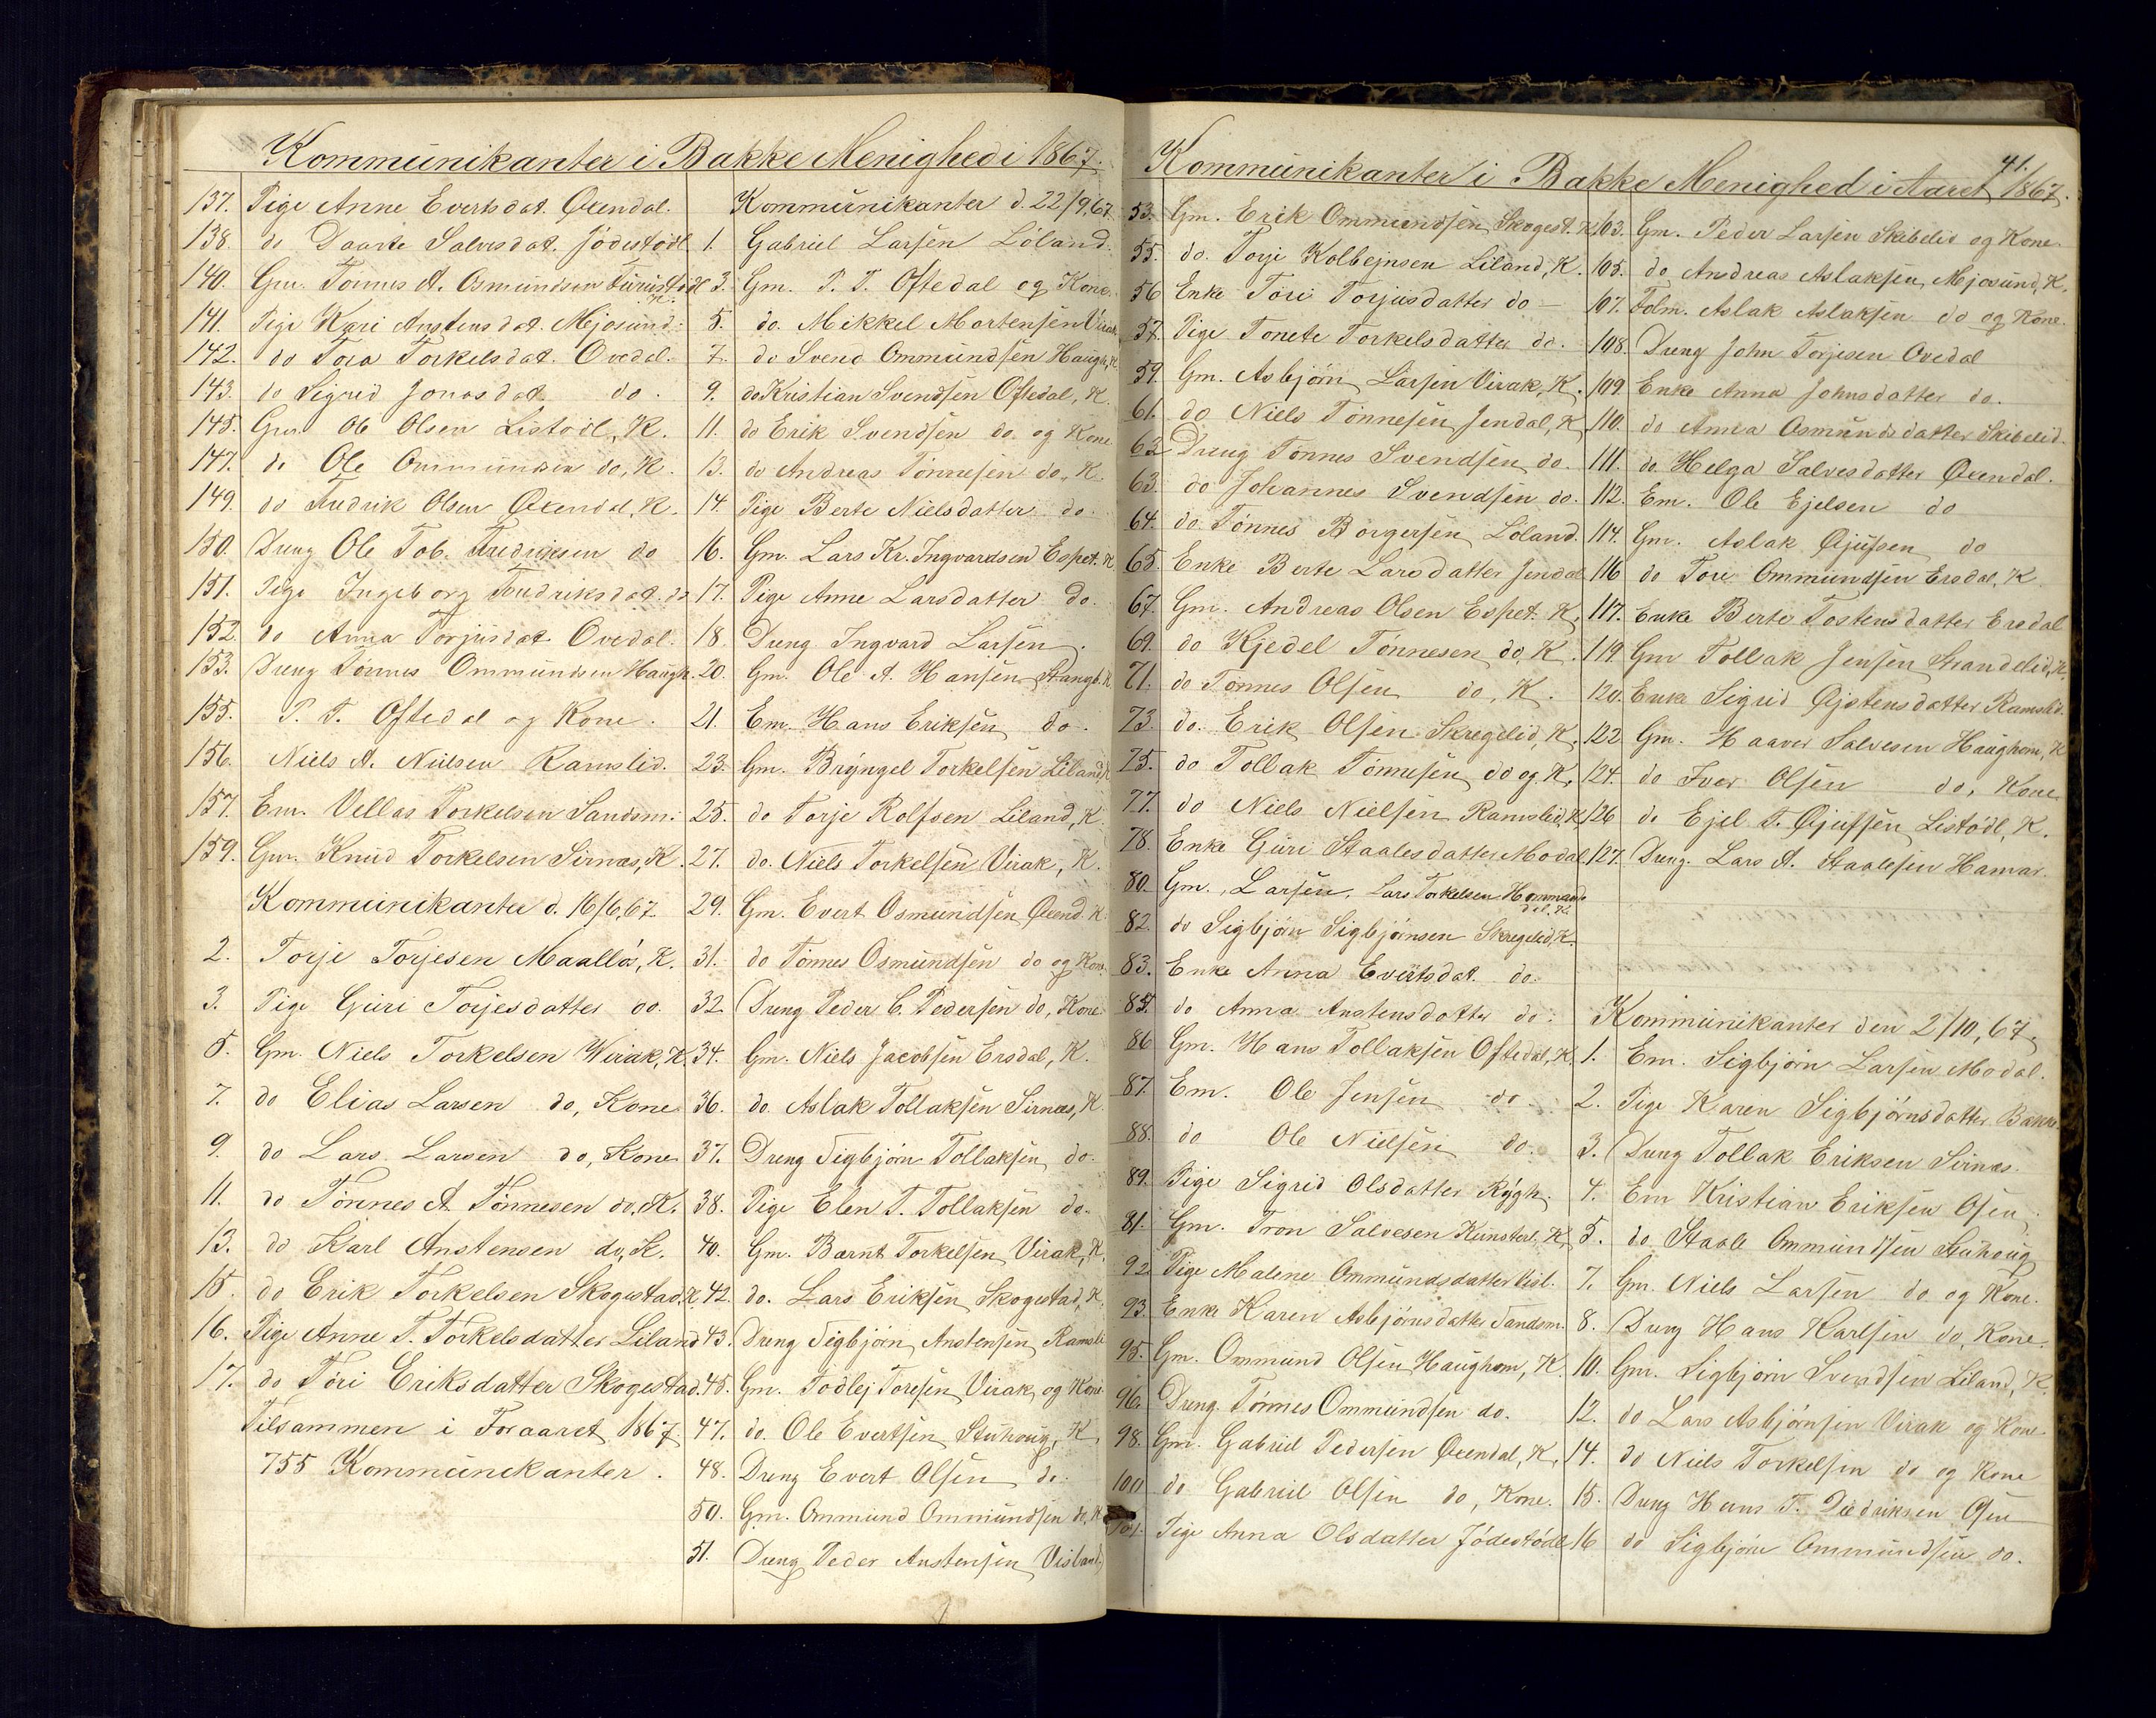 Kommunikanter i Bakke Menighed i 1867.
137. Pige Anne Evertsdat. Øxendal.
138. do Daarte Salvesdat. Jødestödl
140. Gm. Tønnes A. Osmundsen
141. Pige Kari Anstensdat. Mjosund.
142. do Tora Torkelsdat. Ovedal.
143. do Sigrid Jonasdat. do.
145. Gm. Ole Olsen Listödl, K.
147. do Ole Ommundsen do, K.
149. do Fredrik Olsen Øxendal, K.
150. Dreng Ole Tob. Fredriksen do
151. Pige Ingeborg Fredriksdat. do
152. do Anna Torjusdat. Ovedal.
153. Dreng Tønnes Ommundsen Haugh.
155. P. T. Oftedal og Kone.
156. Niels A. Nielsen Ramslid.
157. Em. Vellas Torkelsen Sandsm.
159. Gm. Knud Torkelsen Sirnæs, K.
Kommunikanter d. 16/6, 67.
2. Torje Torjesen Maallås, K.
3. Pige Guri Torjesdatter do.
5. Gm. Niels Torkelsen Wirak, K.
7. do Elias Larsen do, Kone
9. do Lars Larsen do, Kone
11. do Tønnes A. Tønnesen do, K.
13. do Karl Anstensen do, K.
15. do Erik Torkelsen Skogestad, K
16. Pige Anne T. Torkelsdatter Liland
17. do Töri Eriksdatter Skogestad.
Tilsammen i Foraaret 1867.
755 Kommunikanter.
Kommunikanter d. 22/9, 67.
1. Gabriel Larsen Löland.
3. Gm. P. T. Oftedal og Kone.
5. do. Mikkel Mortensen Virak
7. do Svend Ommundsen Haugh, K
9. do Kristian Svendsen Oftedal, K.
11. do Erik Svendsen do. og Kone
13. do Andreas Tønnesen do, K.
14. Pige Berte Nielsdatter do.
16. Gm. Lars Kr. Ingvardsen Espet. K
17. Pige Anne Larsdatter do.
18. Dreng Ingvard Larsen.
20. Gm. Ole A. Hansen Stangb. K
21. Em. Hans Eriksen do.
23. Gm. Bryngel Torkelsen Liland, K
25. do Torje Rolfsen Liland, K.
27. do. Niels Torkelsen Virak, K.
29. Gm. Evert Osmundsen Øxend. K.
31. do Tönnes Osmundsen do og Kone.
32. Dreng Peder C. Pedersen do, Kone.
34. Gm. Niels Jacobsen Ersdal, K.
36. do. Aslak Tollaksen Sirnæs, K
37. Dreng Sigbjörn Tollaksen do.
38. Pige Elen T. Tollaksen do.
40. Gm. Barnt Torkelsen Virak, K.
42. do. Lars Eriksen Skogestad, K.
43. Dreng Sigbjörn Anstensen Ramsli
45. Gm. Todlej Toresen Virak, og Kone
47. do. Ole Evertsen Stuhoug, K.
48. Dreng Evert Olsen do.
50. Gm. Ommund Ommundsen do, K.
51. Dreng Peder Anstensen Visland.
Kommunikanter i Bakke Menighed i Aaret 1867.
41.
53. Gm. Erik Ommundsen Skogest. K
55. do. Torje Kolbejnsen Liland, K.
56. Enke Töri Torjusdatter do
57. Pige Tonete Torkelsdatter do.
59. Gm. Asbjörn Larsen Virak, K.
61. do Niels Tönnesen Jendal, K.
62. Dreng Tönnes Svendsen do.
63. do Johannes Svendsen do.
64. do. Tönnes Borgersen Löland.
65. Enke Berte Larsdatter Jendal
67. Gm. Andreas Olsen Espet. K.
69. do Kjedel Tönnesen do, K.
71. do Tönnes Olsen do, K.
73. do. Erik Olsen Skregelid, K.
75. do Tollak Tönnesen do og K.
77. do Niels Nielsen Ramslid, K
78. Enke Guri Staalesdatter Modal.
80. Gm. Larsen, Lars Torkelsen Hommen-
dal, K.
82. do Sigbjörn Sigbjörnsen Skregelid, K.
83. Enke Anna Evertsdat. do.
85. do Anna Anstensdatter do.
86. Gm. Hans Tollaksen Oftedal, K.
87. Em. Ole Jensen do
88. do Ole Nielsen do.
89. Pige Sigrid Olsdatter Rygh.
91. Gm. Tron Salvesen Kunsterl. K,
92. Pige Malene Ommundsdatter Visl.
93. Enke Karen Asbjörnsdatter Sandsm.
95. Gm. Ommund Olsen Haughom, K.
96. Dreng Tönnes Ommundsen do.
98. Gm. Gabriel Pedersen Øxendal, K.
100 do Gabriel Olsen do, Kone.
101. Pige Anna Olsdatter Jödestödl
103. Gm. Peder Larsen Skibelid og Kone.
105. do Andreas Aslaksen Mjosund, K.
107. Folm. Aslak Aslaksen do og Kone.
108. Dreng John Torjesen Ovedal
109. Enke Anna Johnsdatter do.
110. do Anna Osmundsdatter Skibelid.
111. do. Helga Salvesdatter Øxendal.
112. Em. Ole Ejelsen do
114. Gm. Aslak Øjufsen do
116 do Tore Ommundsen Ersdal, K.
117. Enke Berte Tostensdatter Ersdal
119. Gm Tollak Jensen Strandelid, K,
120. Enke Sigrid Øjstensdatter Ramslid.
122. Gm. Haaver Salvesen Haughom, K
124. do Iver Olsen do, Kone
126 do Ejel T. Øjufsen Listödl, K.
127. Dreng. Lars A. Staalesen Hamar.
Kommunikanter den 2/10, 67.
1. Em. Sigbjörn Larsen Modal.
2. Pige Karen Sigbjörnsdatter Bakke.
3. Dreng Tollak Eriksen Sirnæs.
4. Em Kristian Eriksen Osen
5. do Staale Ommundsen Stuhoug
7. Gm. Niels Larsen do og Kone.
8. Dreng Hans Karlsen do, Kone.
10. Gm. Sigbjörn Svendsen Liland, K.
12. do Lars Asbjörnsen Virak og Kone.
14. do Niels Torkelsen do og Kone
15. Dreng Hans T. Didriksen Osen
16 do Sigbjörn Ommundsen do.